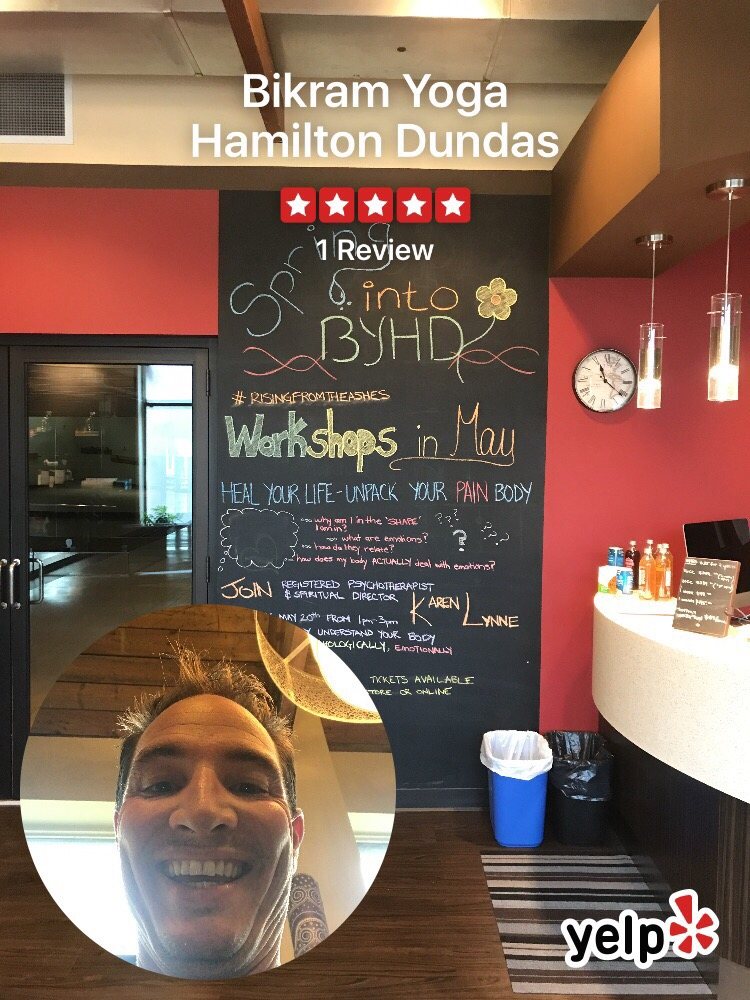 Bikram Yoga
Hamilton Dundas
1 Review
Spring
into
BYHD
# RISINGFROMTHEASHES
Workshops in May
HEAL YOUR LIFE - UNPACK YOUR PAIN BODY
why am I in the 'SHAPE' ???
I am in?
what are emotions? ?
how do they relate?
how does my body ACTUALLY deal with emotions?
JOIN REGISTERED PSYCHOTHERAPIST
& SPIRITUAL DIRECTOR KAREN LYNNE
MAY 20th FROM 1pm-3pm
UNDERSTAND YOUR BODY
EMOTIONALLY
TICKETS AVAILABLE
OR ONLINE
yelp